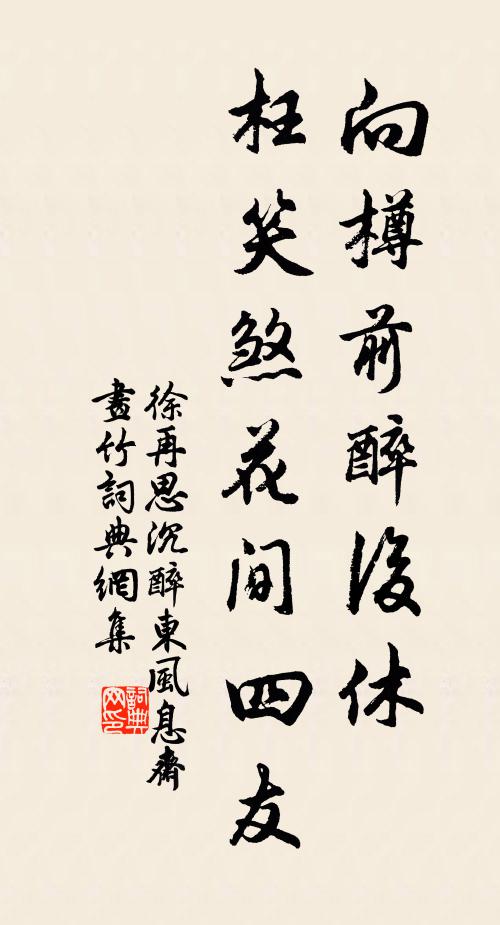 向樽前醉後休
枉笑煞花間四友
徐再思沉醉東風息齋
畫竹詞典網集
詞典網印